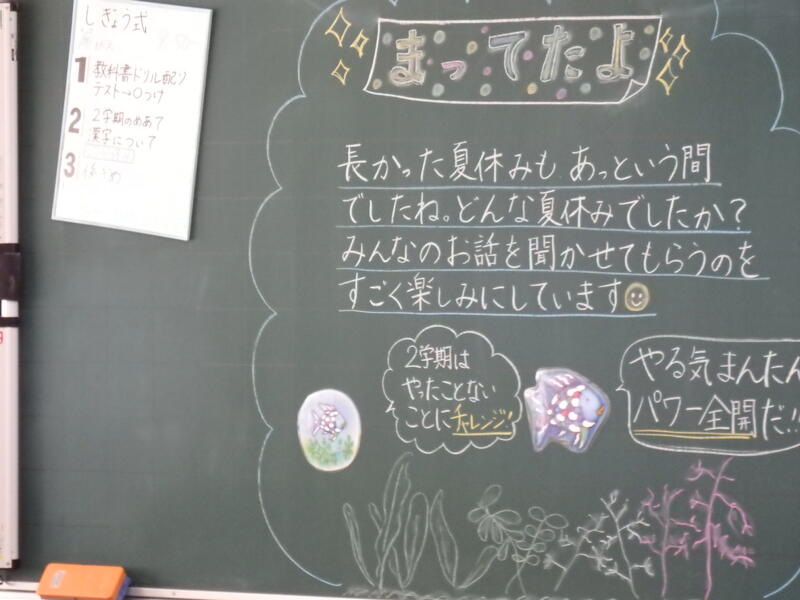 しぎょう式
1 教科書ドリル配り
テスト→○つけ
2 2学期のめあて
漢字について
3
まってたよ
長かった夏休みも、あっという間
でしたね。どんな夏休みでしたか？
みんなのお話を聞かせてもらうのを
すごく楽しみにしています
2学期は
やったことない
ことにチャレンジ！
やる気まんたん
パワー全開だ!!